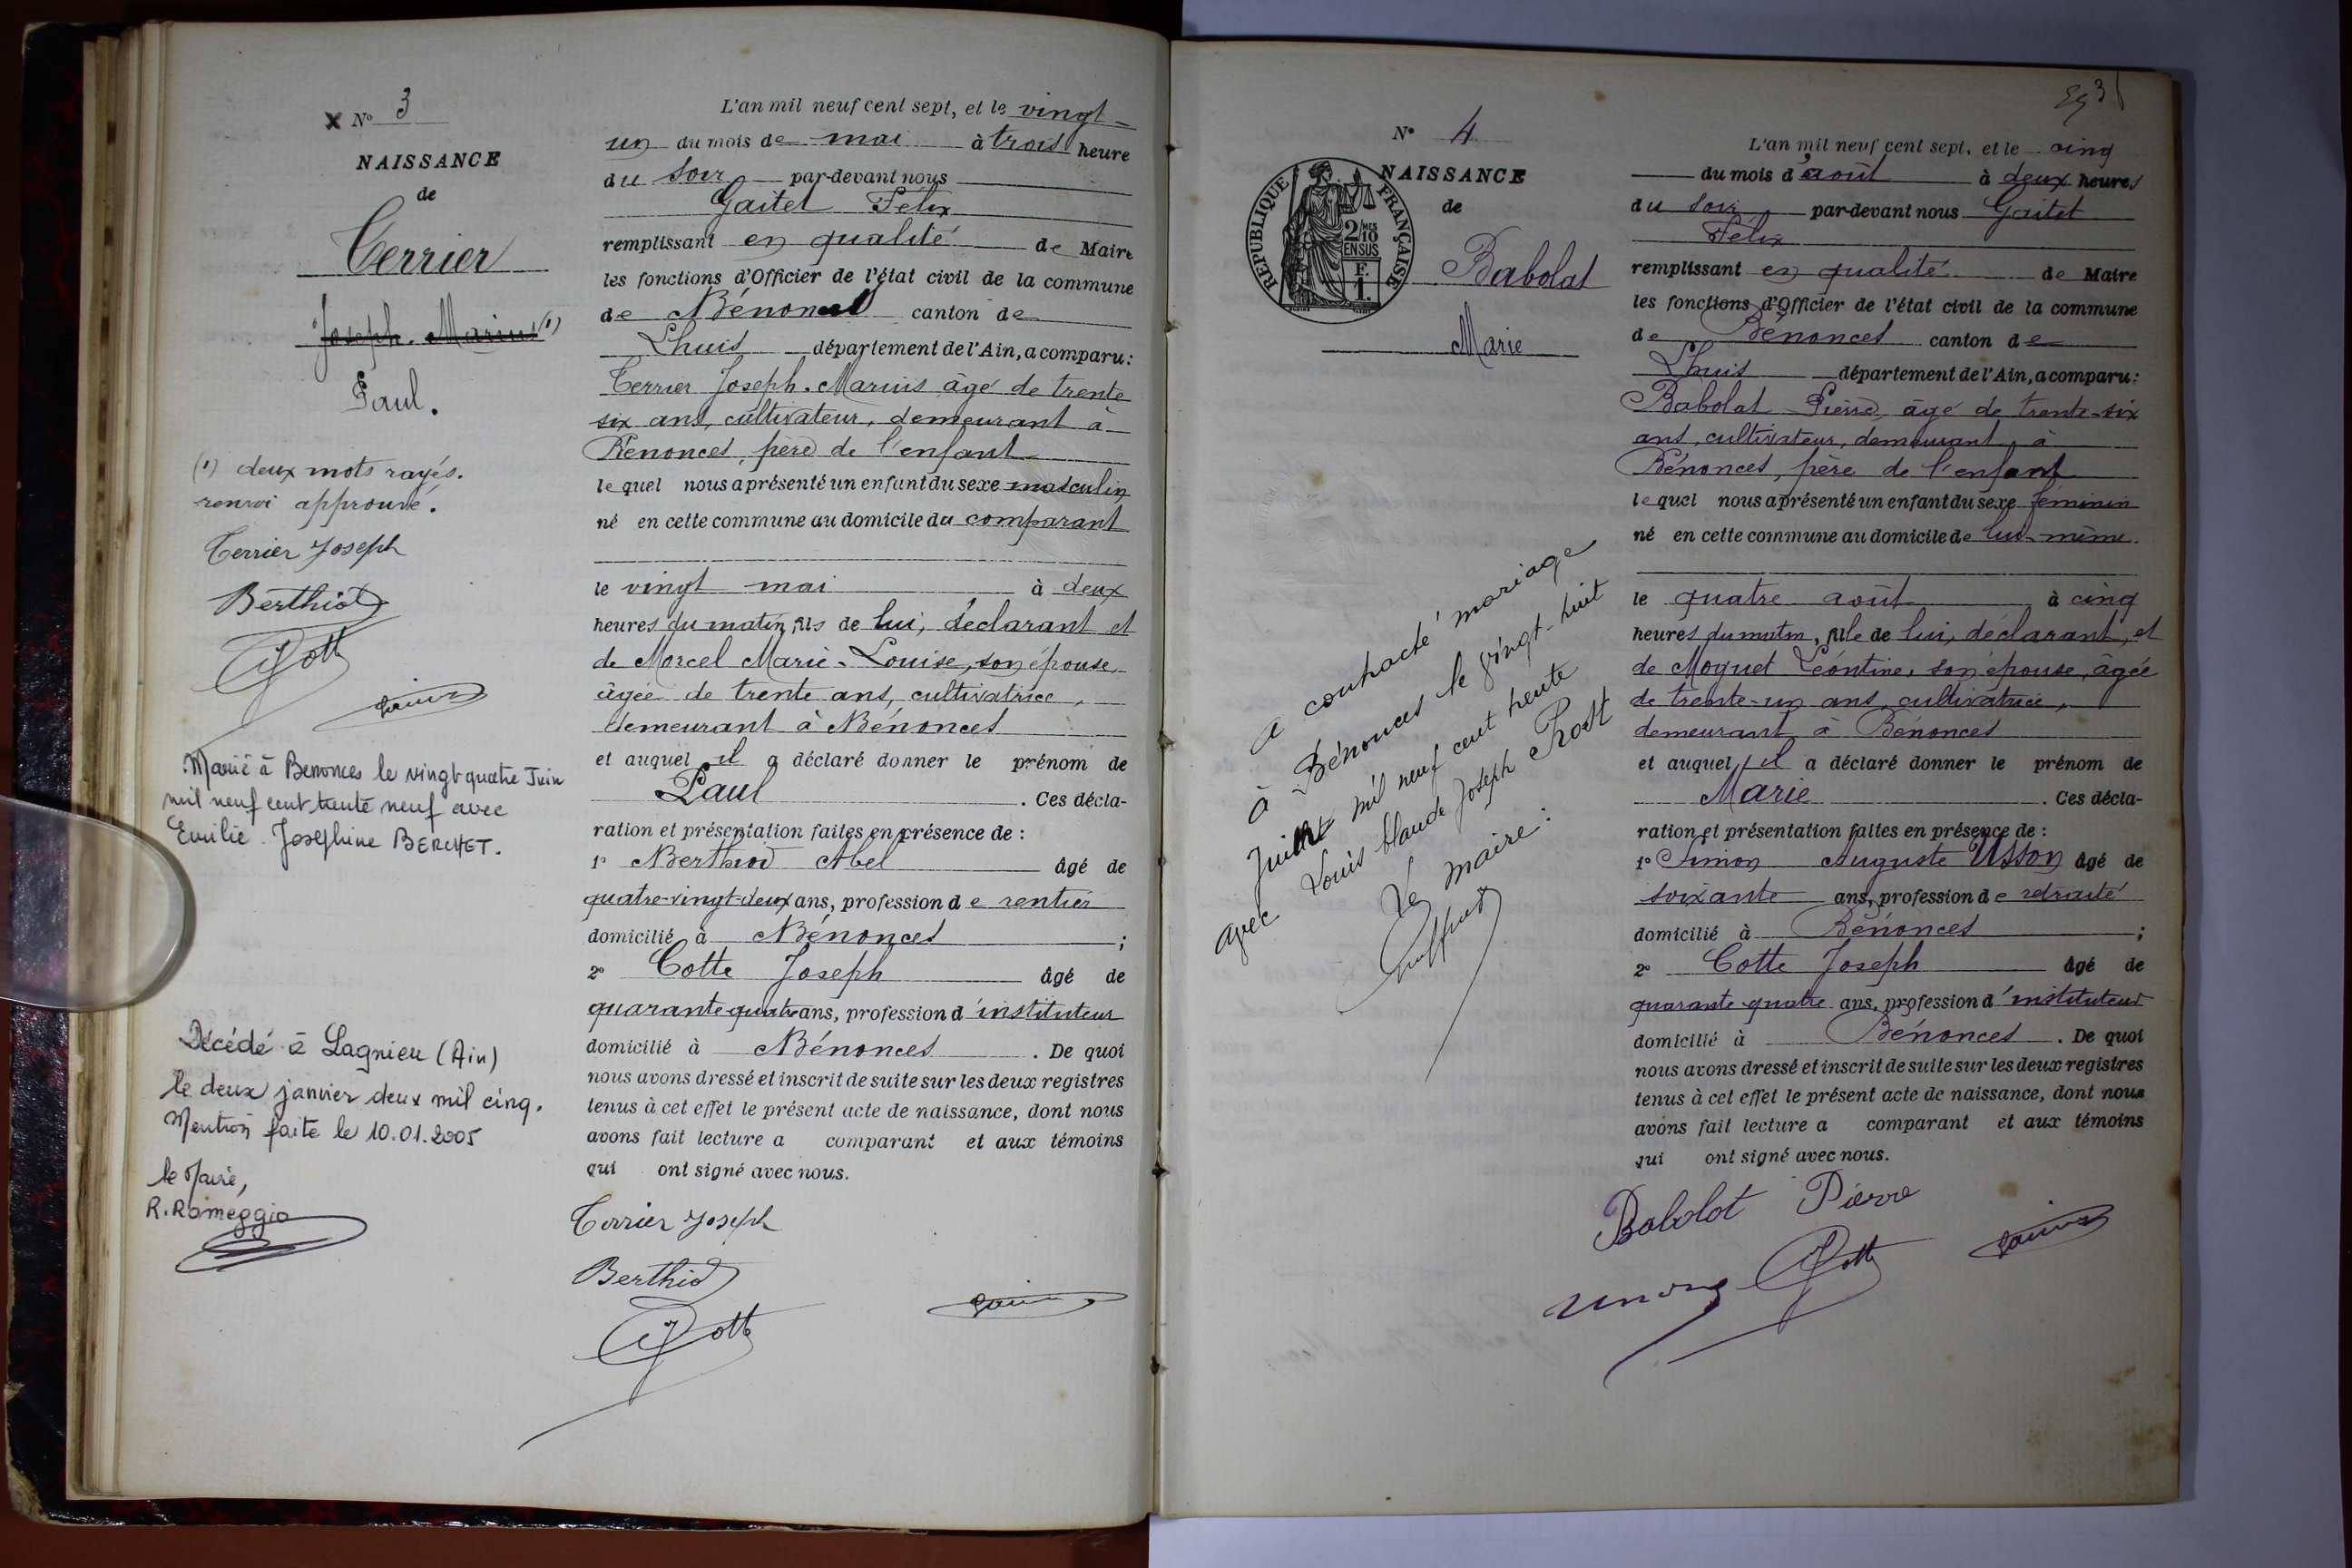 x Nº 3
NAISSANCE
de
Terrier
Joseph-Marius (1)
Paul.
(1) deux mots rayés.
renvoi approuvé.
Terrier Joseph
Berthiod
Cotte
Marié à Benonces le vingt quatre Juin
mil neuf cent trente neuf avec
Emilie Joséphine BERCHET.
Décédé à Lagnieu (Ain)
le deux janvier deux mil cinq.
Mention faite le 10.01.2005
le Maire,
R. Rameggio
L'an mil neuf cent sept, et le vingt-
un du mois de mai à trois heure
du soir par-devant nous
Gaitet Félix
remplissant en qualité de Maire
les fonctions d'Officier de l'état civil de la commune
de Bénonces canton de
Lhuis département de l'Ain, a comparu:
Terrier Joseph-Marius âgé de trente
six ans, cultivateur, demeurant à
Bénonces, père de l'enfant
lequel nous a présenté un enfant du sexe masculin
né en cette commune au domicile du comparant
le vingt mai à deux
heures du matin, fils de lui, déclarant et
de Morcel Marie-Louise, son épouse,
âgée de trente ans, cultivatrice,
demeurant à Bénonces
et auquel il a déclaré donner le prénom de
Paul. Ces décla-
ration et présentation faites en présence de :
1º Berthiod Abel âgé de
quatre-vingt-deux ans, profession de rentier
domicilié à Bénonces ;
2º Cotte Joseph âgé de
quarante-quatre ans, profession d'instituteur
domicilié à Bénonces. De quoi
nous avons dressé et inscrit de suite sur les deux registres
tenus à cet effet le présent acte de naissance, dont nous
avons fait lecture a comparant et aux témoins
qui ont signé avec nous.
Terrier Joseph
Berthiod
Cotte
Nº 4
NAISSANCE
de
RÉPUBLIQUE FRANÇAISE
2/10 MES
EN SUS
F.
1.
Babolat
Marie
a contracté mariage
à Bénonces le vingt-huit
Juillet mil neuf cent trente
avec Louis Claude Joseph Rost
Le Maire :
L'an mil neuf cent sept, et le cinq
du mois d'août à deux heures
du soir par-devant nous Gaitet
Félix
remplissant en qualité de Maire
les fonctions d'Officier de l'état civil de la commune
de Bénonces canton de
Lhuis département de l'Ain, a comparu:
Babolat Pierre, âgé de trente-six
ans, cultivateur, demeurant à
Bénonces, père de l'enfant
lequel nous a présenté un enfant du sexe feminin
né en cette commune au domicile de lui-même.
le quatre août à cinq
heures du matin, fille de lui, déclarant, et
de Moquet Léontine, son épouse, âgée
de trente-un ans, cultivatrice,
demeurant à Bénonces
et auquel il a déclaré donner le prénom de
Marie. Ces décla-
ration et présentation faites en présence de :
1º Simon Auguste Usson âgé de
soixante ans, profession de retraité
domicilié à Bénonces ;
2º Cotte Joseph âgé de
quarante-quatre ans, profession d'instituteur
domicilié à Bénonces. De quoi
nous avons dressé et inscrit de suite sur les deux registres
tenus à cet effet le présent acte de naissance, dont nous
avons fait lecture a comparant et aux témoins
qui ont signé avec nous.
Babolat Pierre
Cotte